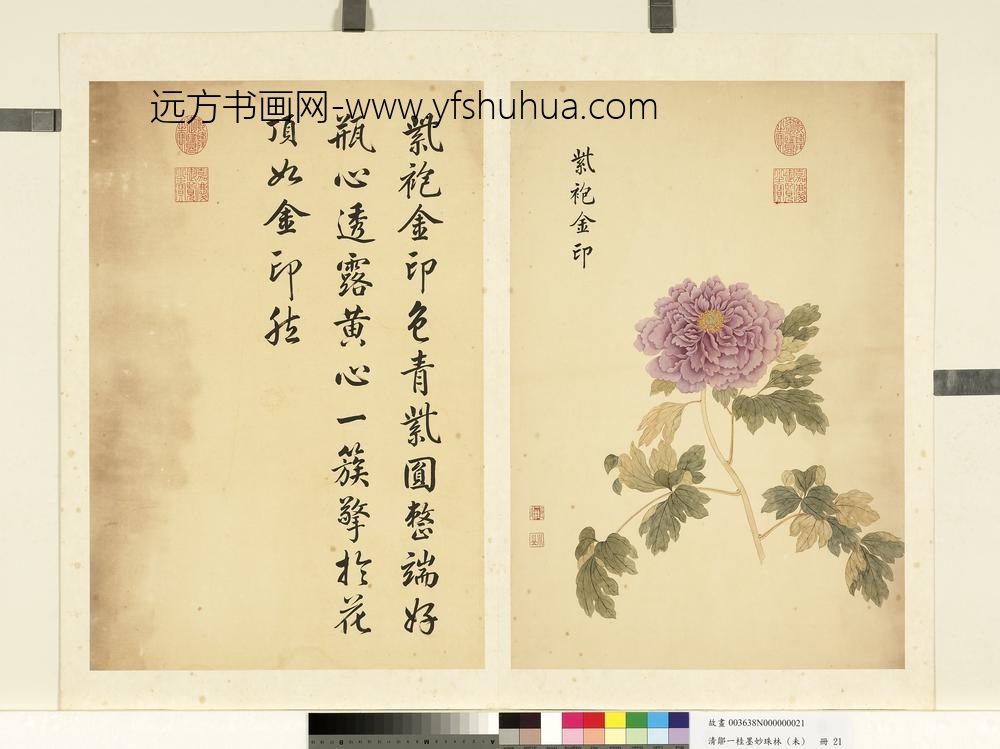 远方书画网-www.yfshuhua.com
紫袍金印
紫袍金印色青紫圓整端好
瓶心透露黄心一簇擎於花
頂如金印然
故畫 003638N000000021
清鄒一桂墨妙珠林（未） 冊 21